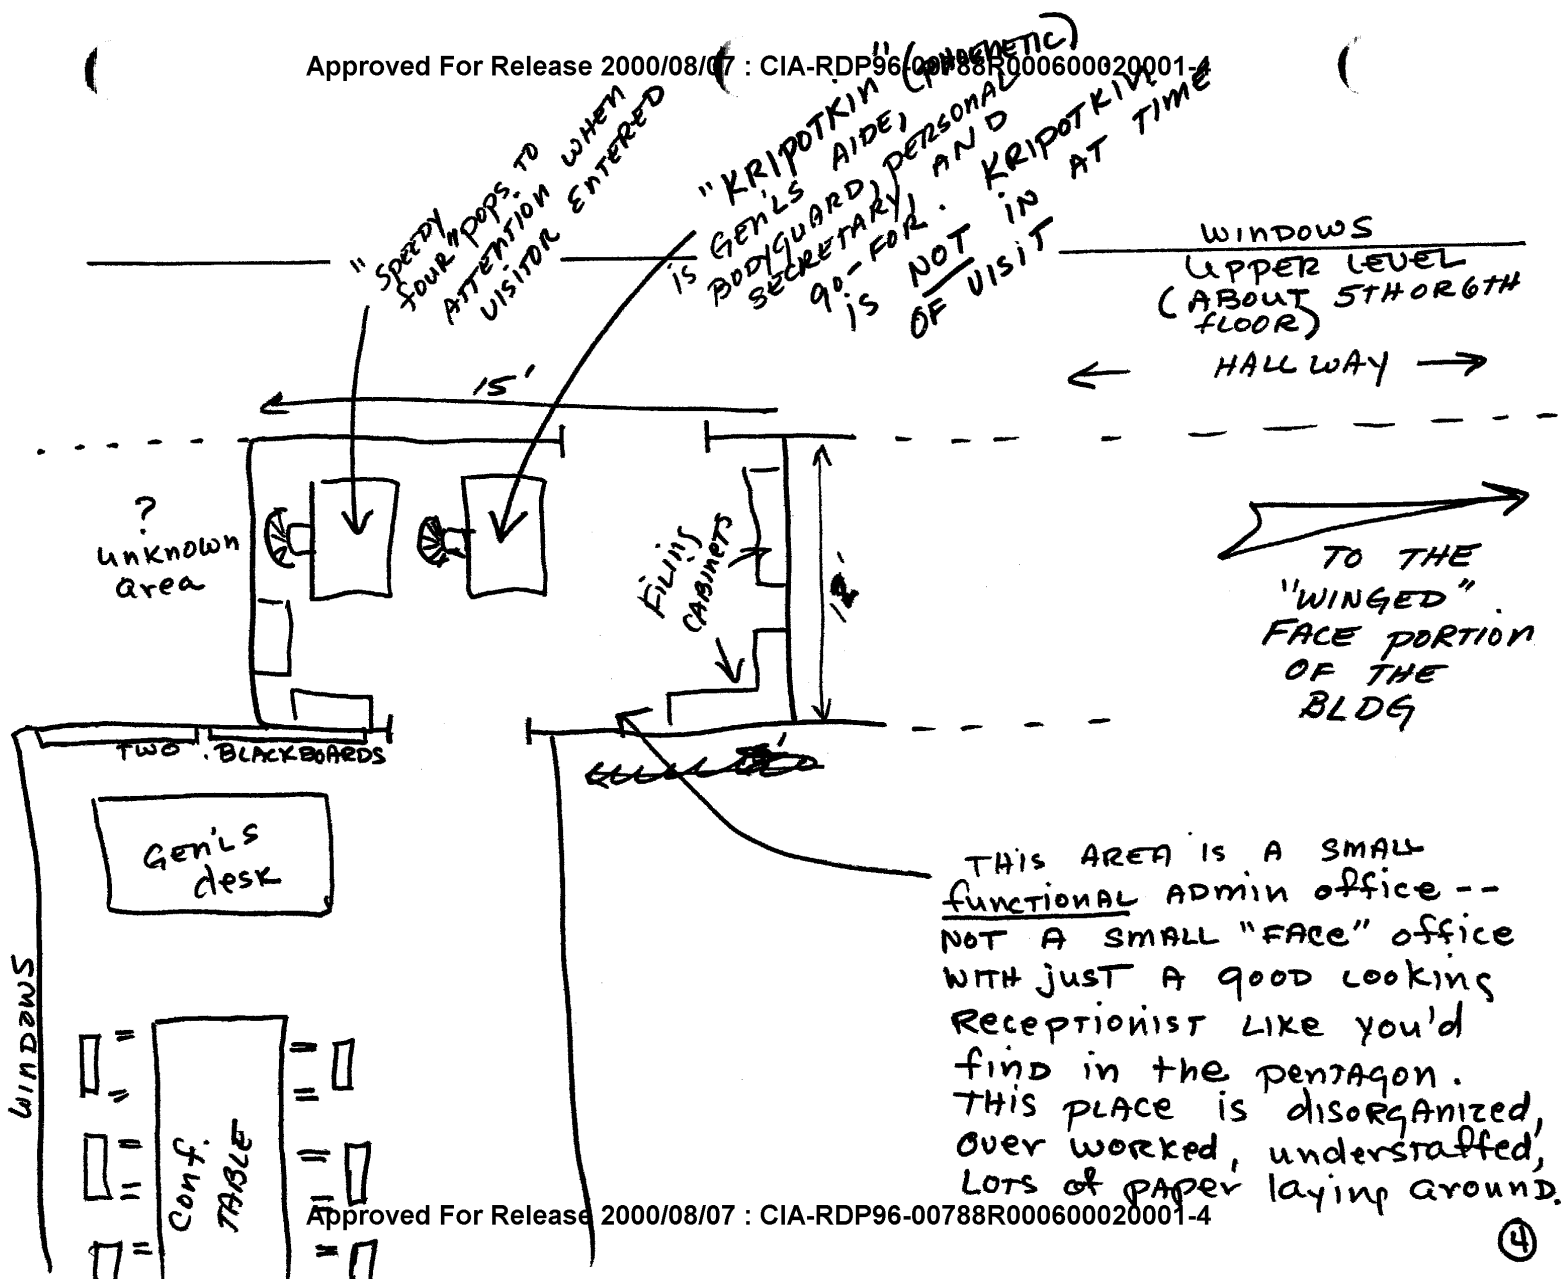 Approved For Release 2000/08/07 : CIA-RDP96-00788R000600020001-4
"SPEEDY
four" pops. TO
ATTENTION WHEN
VISITOR ENTERED
"KRIPOTKIN" (PHOENETIC)
is GEN'LS AIDE,
BODYGUARD, PERSONAL
SECRETARY, AND
go-FOR. KRIPOTKIN
is NOT IN AT TIME
OF VISIT
WINDOWS
UPPER LEVEL
(ABOUT 5TH OR 6TH
fLOOR)
HALLWAY
15'
?
unknown
area
FiLiNg
CABINETS
TO THE
"WINGED"
FACE PORTION
OF THE
BLDG
TWO BLACKBOARDS
Gen'LS
desk
WINDOWS
THIS AREA IS A SMALL
functionAL ADMIN office --
NOT A SMALL "FACE" office
WITH jusT A gOOD LOOKING
ReceptionisT Like you'd
finD in the penTAgon.
THIS pLACE is disorgAnized,
over worked, understaffed,
LOTS of pAper laying arounD.
Conf.
TABLE
Approved For Release 2000/08/07 : CIA-RDP96-00788R000600020001-4
4